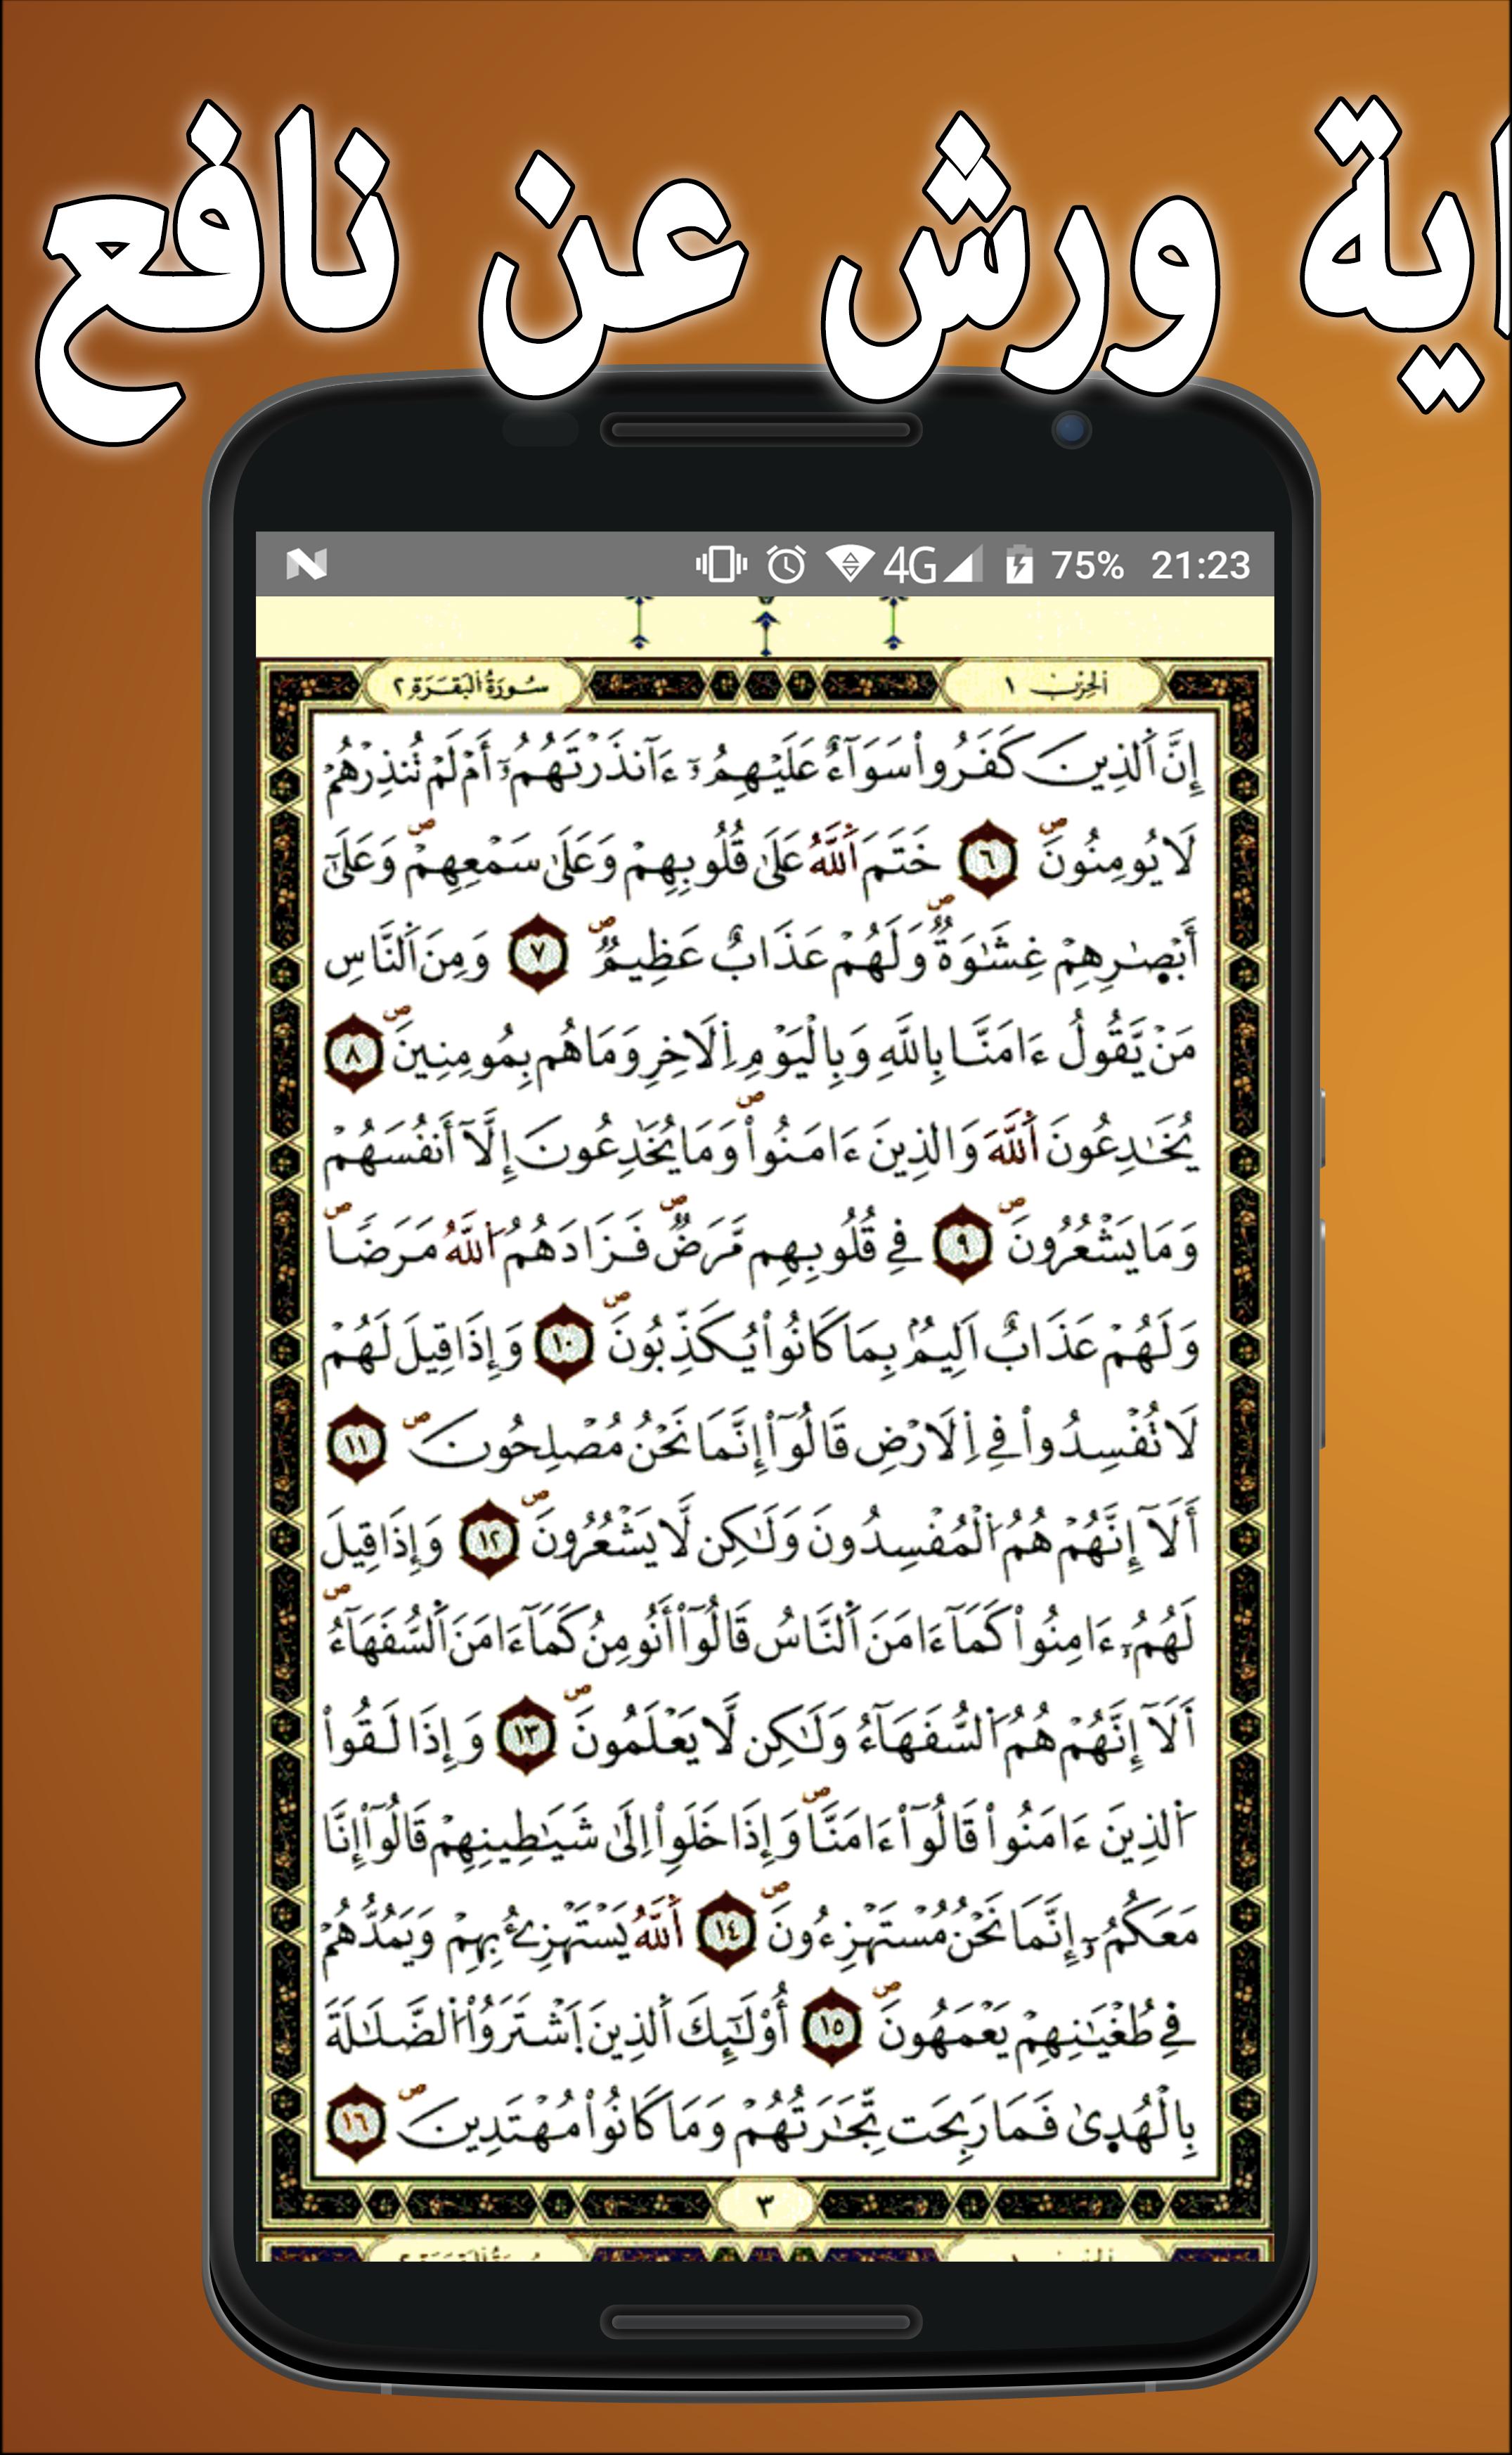 اية ورش عن نافع
4G 75% 21:23
الحزب ١
سورة البقرة ٢
إِنَّ اَ۬لذِينَ كَفَرُواْ سَوَآءٌ عَلَيْهِمُۥٓ ءَآنذَرْتَهُمُۥٓ أَمْ لَمْ تُنذِرْهُمْ
لَا يُومِنُونَۖ ٦ خَتَمَ اَ۬للَّهُ عَلَىٰ قُلُوبِهِمْ وَعَلَىٰ سَمْعِهِمْۖ وَعَلَىٰٓ
أَبْصٰ۪رِهِمْ غِشَٰوَةٞۖ وَلَهُمْ عَذَابٌ عَظِيمٞۖ ٧ وَمِنَ اَ۬لنَّاسِ
مَنْ يَّقُولُ ءَامَنَّا بِاللَّهِ وَبِالْيَوْمِ اِ۬لَاخِرِ وَمَا هُم بِمُومِنِينَۖ ٨
يُخَٰدِعُونَ اَ۬للَّهَ وَالذِينَ ءَامَنُواْۖ وَمَا يُخَٰدِعُونَ إِلَّآ أَنفُسَهُمْ
وَمَا يَشْعُرُونَۖ ٩ فِے قُلُوبِهِم مَّرَضٞۖ فَزَادَهُمُ اُ۬للَّهُ مَرَضاٗۖ
وَلَهُمْ عَذَابٌ اَلِيمُۢ بِمَا كَانُواْ يُكَذِّبُونَۖ ١٠ وَإِذَا قِيلَ لَهُمْ
لَا تُفْسِدُواْ فِے اِ۬لَارْضِ قَالُوٓاْ إِنَّمَا نَحْنُ مُصْلِحُونَۖ ١١
أَلَآ إِنَّهُمْ هُمُ اُ۬لْمُفْسِدُونَ وَلَٰكِن لَّا يَشْعُرُونَۖ ١٢ وَإِذَا قِيلَ
لَهُمُۥٓ ءَامِنُواْ كَمَآ ءَامَنَ اَ۬لنَّاسُ قَالُوٓاْ أَنُومِنُ كَمَآ ءَامَنَ اَ۬لسُّفَهَآءُۖ
أَلَآ إِنَّهُمْ هُمُ اُ۬لسُّفَهَآءُ وَلَٰكِن لَّا يَعْلَمُونَۖ ١٣ وَإِذَا لَقُواْ
اُ۬لذِينَ ءَامَنُواْ قَالُوٓاْ ءَامَنَّاۖ وَإِذَا خَلَوِاْ اِلَىٰ شَيَٰطِينِهِمْ قَالُوٓاْ إِنَّا
مَعَكُمُۥٓ إِنَّمَا نَحْنُ مُسْتَهْزِءُونَۖ ١٤ اَ۬للَّهُ يَسْتَهْزِئُ بِهِمْ وَيَمُدُّهُمْ
فِے طُغْيَٰنِهِمْ يَعْمَهُونَۖ ١٥ أُوْلَٰٓئِكَ اَ۬لذِينَ اَ۪شْتَرَوُاْ اُ۬لضَّلَٰلَةَ
بِالْهُد۪ىٰ فَمَا رَبِحَت تِّجَٰرَتُهُمْ وَمَا كَانُواْ مُهْتَدِينَۖ ١٦
٣